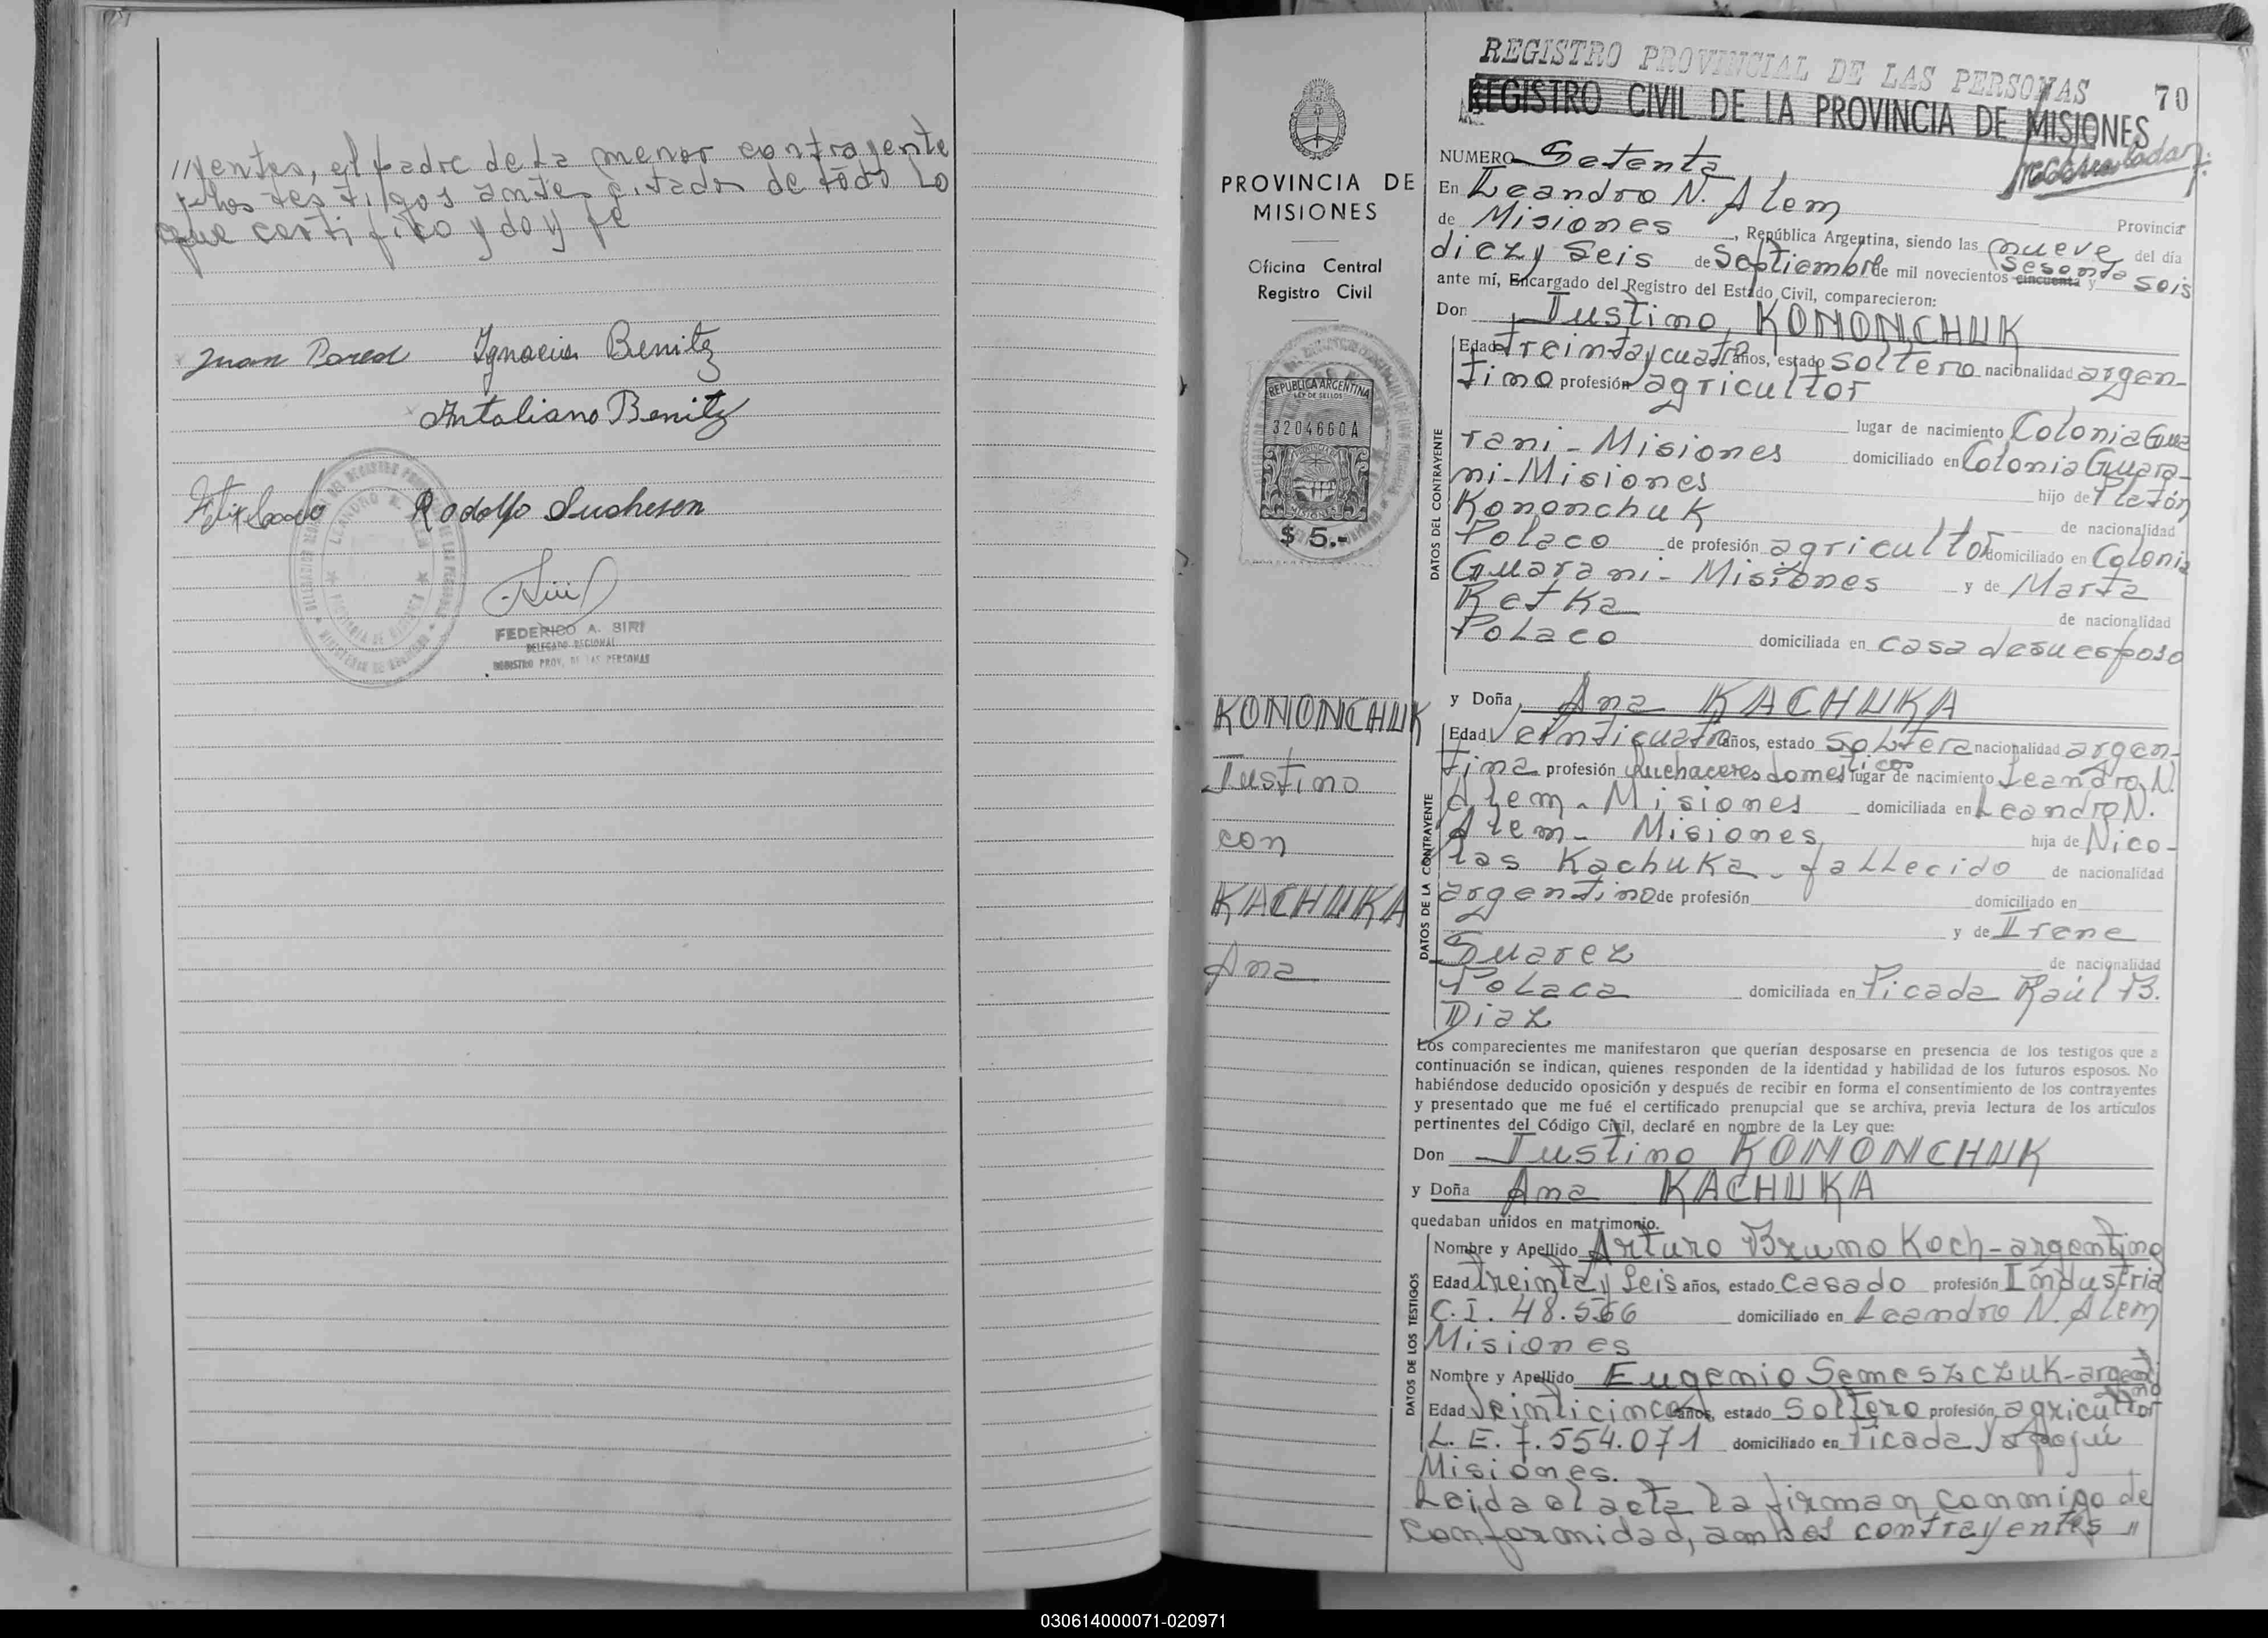 //yentes, el padre de la menor contrayente
y los testigos antes citados de todo lo
que certifico y doy fe
Juan Pared Ignacia Benitez
Antaliano Benitez
Rodolfo
FEDERICO A. SIRI
DELEGADO REGIONAL
REGISTRO PROV. DE LAS PERSONAS
PROVINCIA DE
MISIONES
Oficina Central
Registro Civil
REPUBLICA ARGENTINA
LEY DE SELLOS
3204660A
MISIONES
$ 5.-
KONONCHUK
Justino
con
KACHUKA
Ana
REGISTRO PROVINCIAL DE LAS PERSONAS
70
REGISTRO CIVIL DE LA PROVINCIA DE MISIONES
NUMERO Setenta
En Leandro N. Alem Provincia
de Misiones, República Argentina, siendo las nueve del día
diez y seis de Septiembre de mil novecientos cincuenta y sesenta seis
ante mí, Encargado del Registro del Estado Civil, comparecieron:
Don Justino KONONCHUK
Edad treinta y cuatro años, estado soltero nacionalidad argen-
tino profesión agricultor
lugar de nacimiento Colonia Gua
rani - Misiones domiciliado en Colonia Guara-
ni - Misiones hijo de Pletón
Kononchuk de nacionalidad
Polaco de profesión agricultor domiciliado en Colonia
Guarani - Misiones y de Marta
Retka de nacionalidad
Polaco domiciliada en casa de su esposo
DATOS DEL CONTRAYENTE
y Doña Ana KACHUKA
Edad Veinticuatro años, estado soltera nacionalidad argen-
tina profesión quehaceres domesticos lugar de nacimiento Leandro N.
Alem - Misiones domiciliada en Leandro N.
Alem - Misiones hija de Nico-
las Kachuka - fallecido de nacionalidad
argentino de profesión domiciliado en
y de Irene
Suarez de nacionalidad
Polaca domiciliada en Picada Raúl B.
Diaz
DATOS DE LA CONTRAYENTE
Los comparecientes me manifestaron que querían desposarse en presencia de los testigos que a
continuación se indican, quienes responden de la identidad y habilidad de los futuros esposos. No
habiéndose deducido oposición y después de recibir en forma el consentimiento de los contrayentes
y presentado que me fué el certificado prenupcial que se archiva, previa lectura de los artículos
pertinentes del Código Civil, declaré en nombre de la Ley que:
Don Justino KONONCHUK
y Doña Ana KACHUKA
quedaban unidos en matrimonio.
Nombre y Apellido Arturo Bruno Koch - argentino
Edad treinta y seis años, estado casado profesión Industria
C.I. 48.566 domiciliado en Leandro N. Alem
Misiones
Nombre y Apellido Eugenio Semeszczuk - argenti
no
Edad Veinticinco años, estado soltero profesión agricultor
L.E. 7.554.071 domiciliado en Picada
Misiones.
DATOS DE LOS TESTIGOS
Leida el acta la firman conmigo de
conformidad, ambos contrayentes //
030614000071-020971